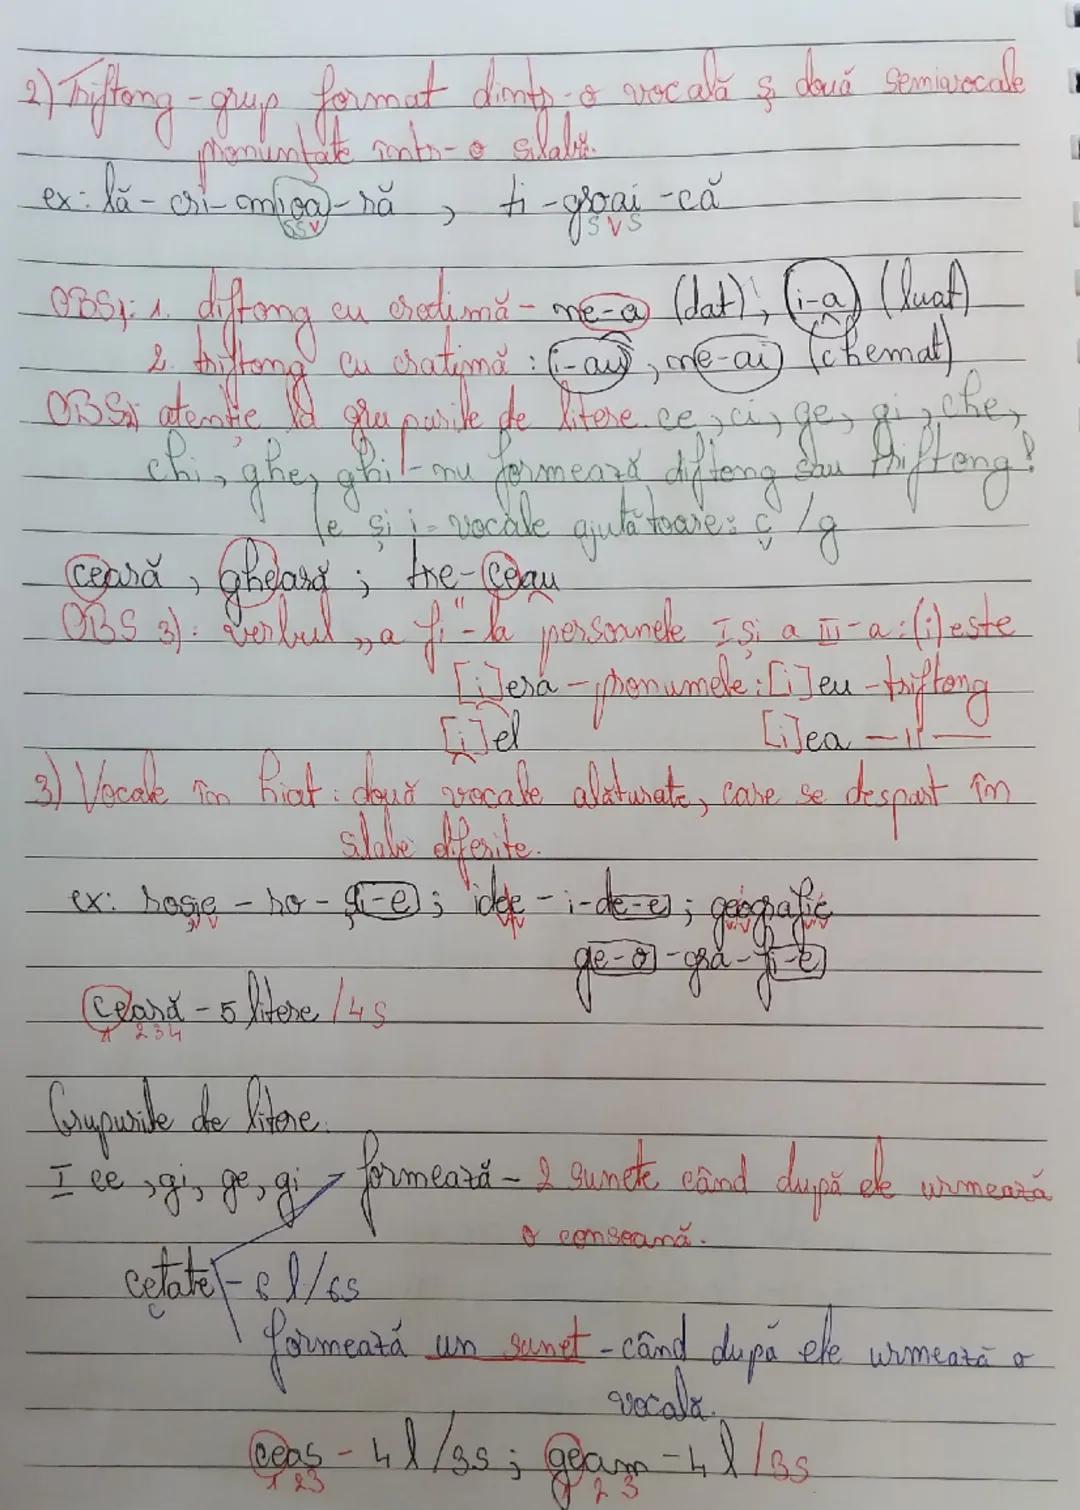 2) Triftong - grup format dintr-o vocală și două semivocale
pronunțate într-o silabă.
ex: lă-cri-mioa-ră, ti-groai-că
SSV SVS
OBS1: 1. diftong cu cratimă - ne-a (dat); i-a (luat)
2. triftong cu cratimă: i-au, ne-ai (chemat)
OBS2) atenție la grupurile de litere ce, ci, ge, gi, che,
chi, ghe, ghi - nu formează diftong sau triftong!
(e și i = vocale ajutătoare: c /g
ceară, gheară; tre-ceau
OBS 3): verbul „a fi" - la persoanele I și a III-a: (i)este
[i]era - pronumele: [i]eu - triftong
[i]el [i]ea —ıı—
3) Vocale în hiat: două vocale alăturate, care se despart în
silabe diferite.
ex: roșie - ro-și-e; idee - i-de-e; geografie
ge-o-gra-fi-e
ceară - 5 litere /4s
1 2 3 4
Grupurile de litere.
I ce, gi, ge, gi - formează - 2 sunete când după ele urmează
o consoană.
cetate - 6 l/6s
c
formează un sunet - când după ele urmează o
vocală.
ceas - 4 l/3s; geam - 4 l/3s
1 2 3 1 2 3